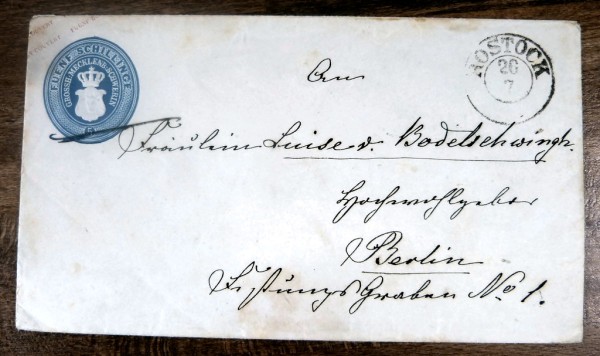 FUENF SCHILLINGE
GROSSH. MECKLENB. SCHWERIN
5
ROSTOCK
26
7
An
Fräulein Luise v. Bodelschwingh.
Hochwohlgebor
Berlin
Festungs Graben No 1.